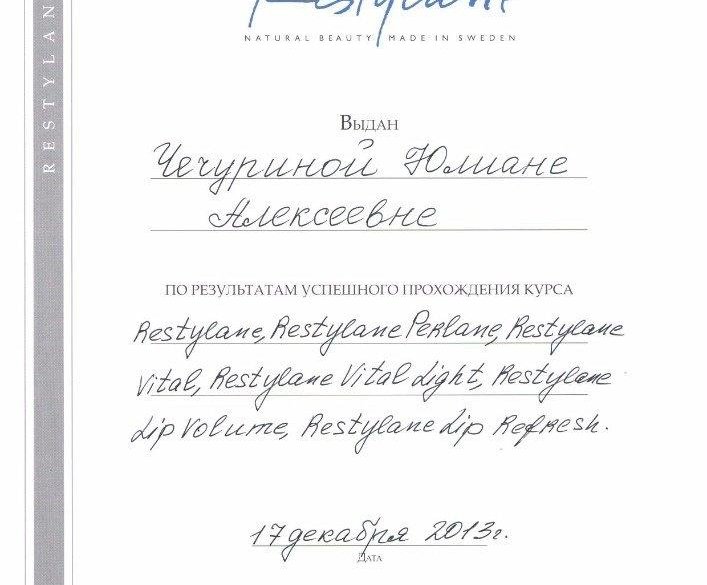 Restylane
NATURAL BEAUTY MADE IN SWEDEN
RESTYLAN
Выдан
Чечуриной Юлиане
Алексеевне
ПО РЕЗУЛЬТАТАМ УСПЕШНОГО ПРОХОЖДЕНИЯ КУРСА
Restylane, Restylane Perlane, Restylane
Vital, Restylane Vital Light, Restylane
Lip Volume, Restylane Lip Refresh.
17 декабря 2013г.
Дата